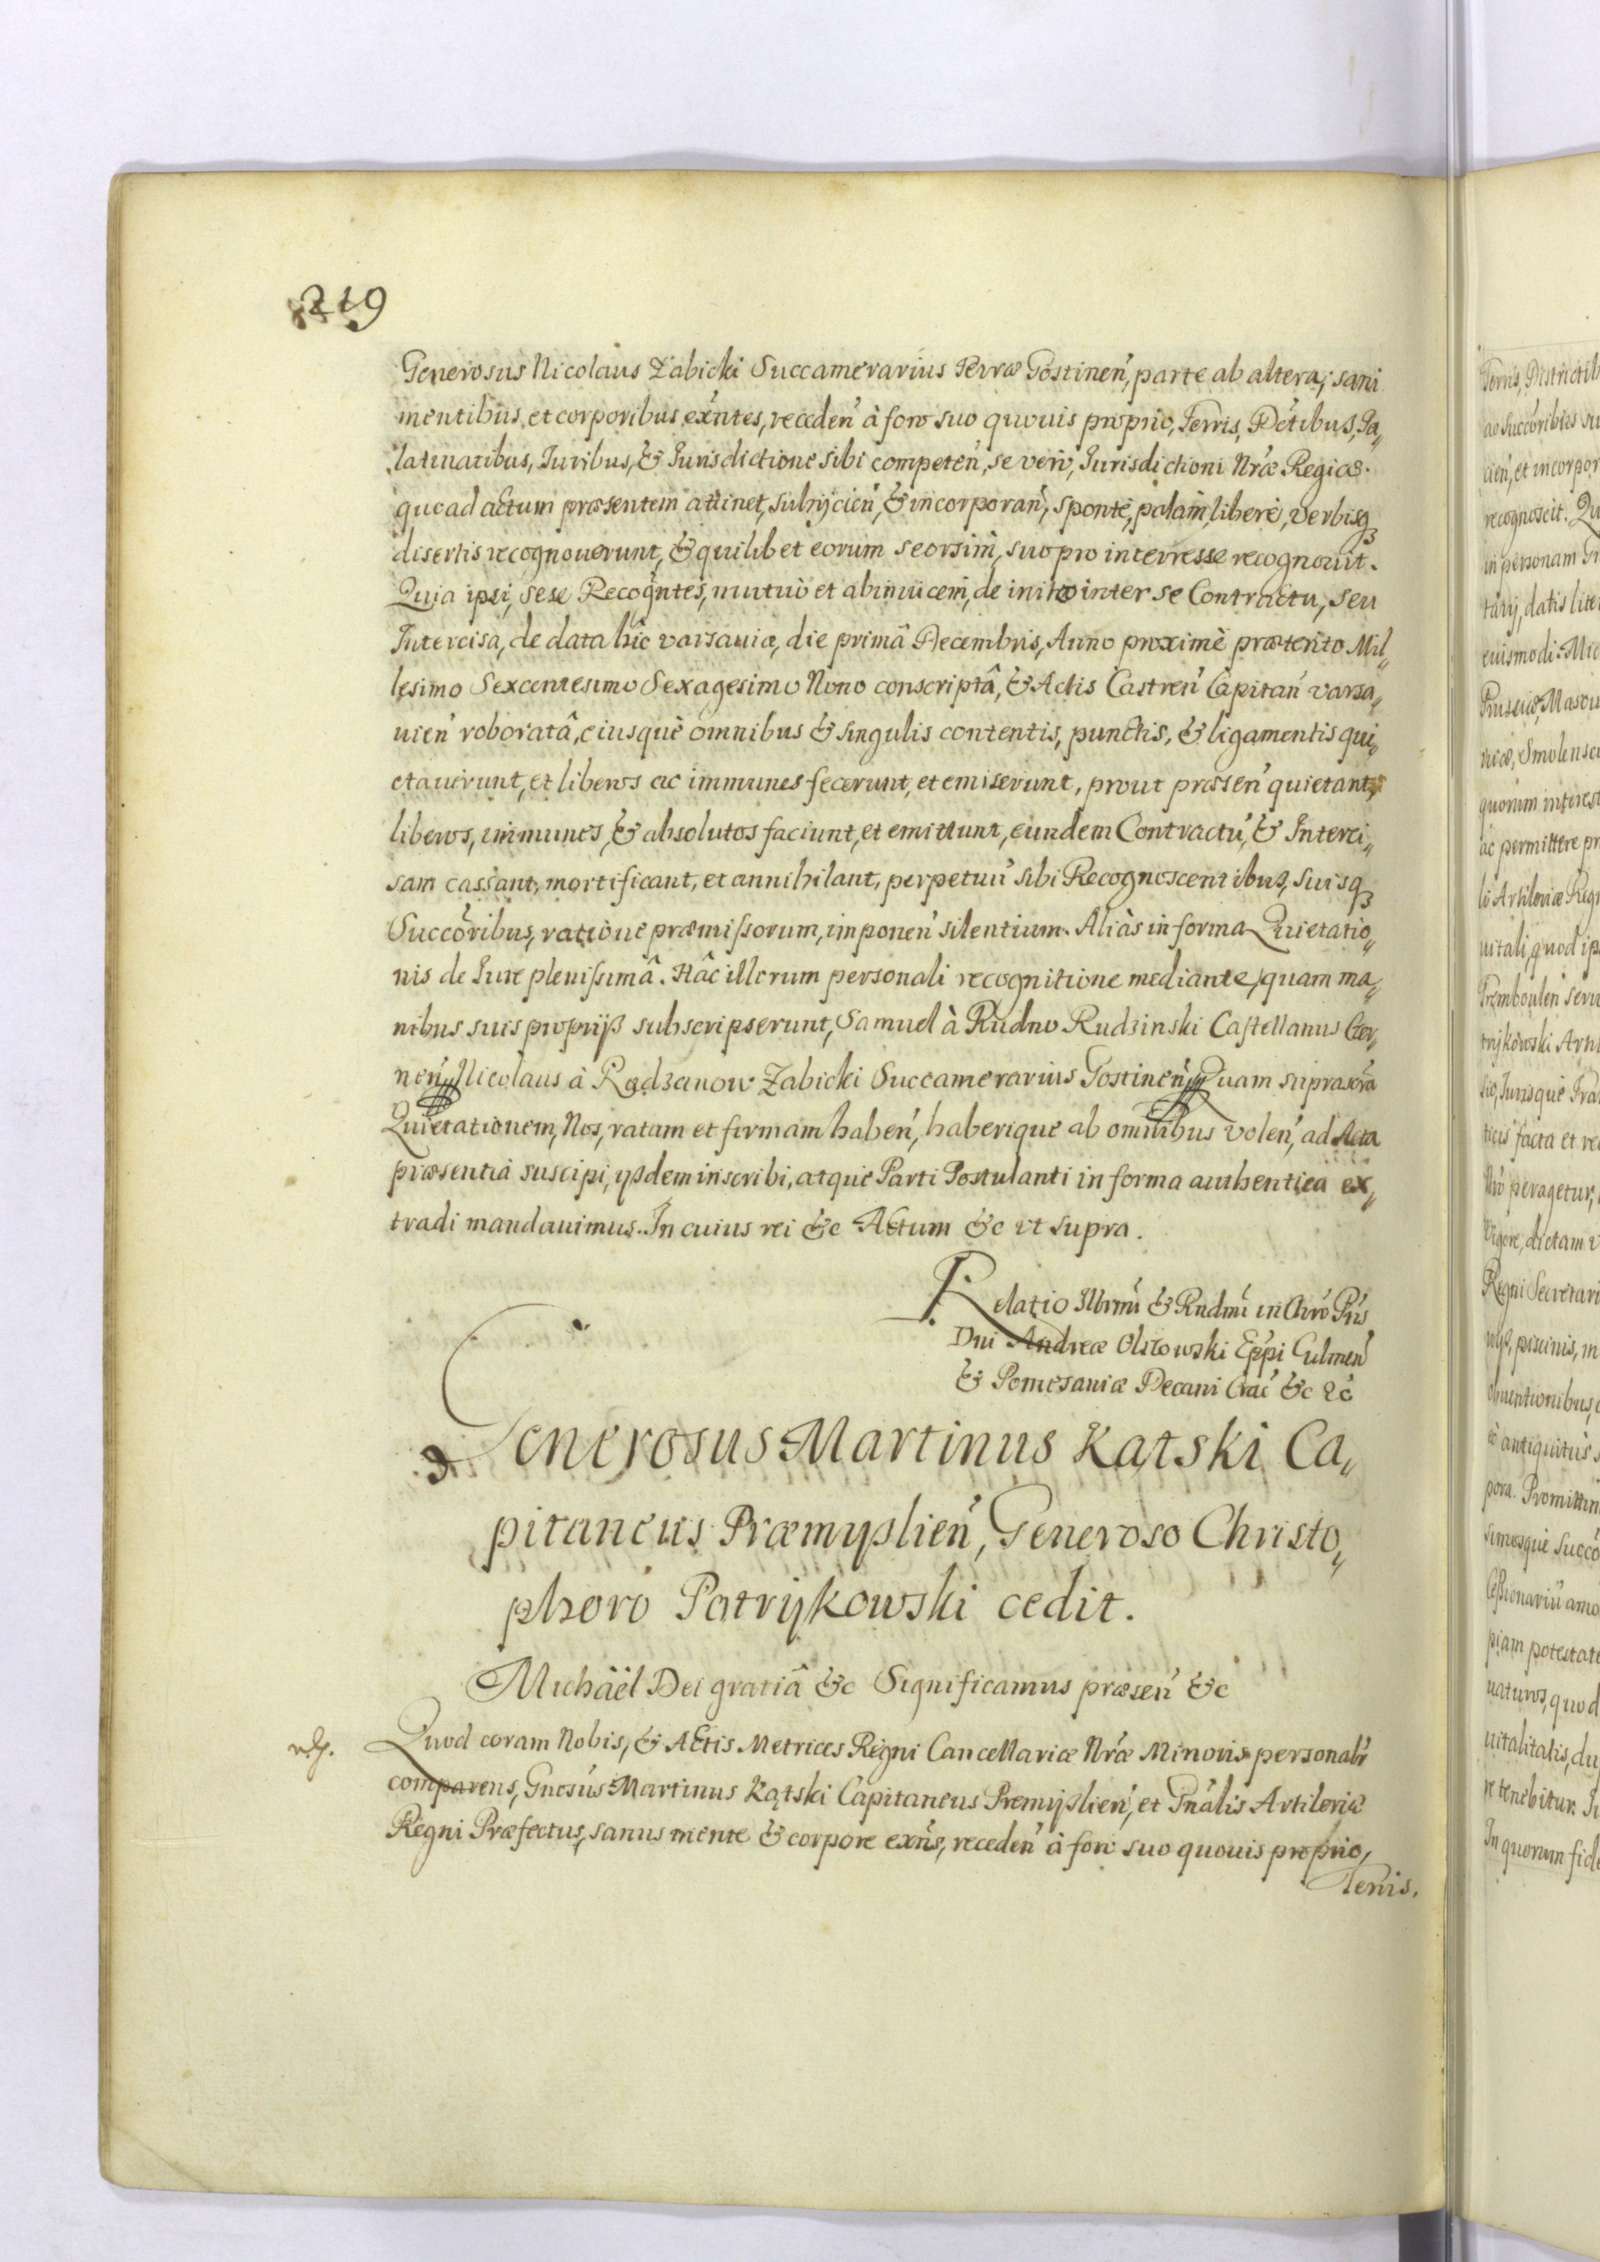 219
Generosus Nicolaus Zabicki Succamerarius Terræ Gostinen̄, parte ab altera, sani
mentibus, et corporibus exn̄tes, receden̄ à foro suo quouis proprio, Terris, Dc̄tibus, Pa„
latinatibus, Iuribus, & Iurisdictione sibi competen̄, se verò, Iurisdictioni Nr̄æ Regiæ.
quo ad actum præsentem attinet, subijcien̄, & incorporan̄, sponte, palàm, liberè, verbisq₃
disertis recognouerunt, & quilibet eorum seorsim, suo pro interresse recognouit.
Quia ipsi, sese Recogn̄tes, mutuò et abinuicem, de inito inter se Contractu, seu
Intercisa, de data hîc varsauiæ, die primâ Decembris, Anno proximè præterito Mil„
lesimo Sexcentesimo Sexagesimo Nono conscriptâ, & Actis Castren̄ Capitan̄ varsa„
uien̄ roboratâ, eiusquè omnibus & singulis contentis, punctis, & ligamentis qui„
etauerunt, et liberos ac immunes fecerunt, et emiserunt, prout præsen̄ quietant,
liberos, immunes, & absolutos faciunt, et emittunt, eundem Contractū, & Interci„
sam cassant, mortificant, et annihilant, perpetuū sibi Recognoscentibus, suisq₃
Succōribus, ratione præmissorum, imponen̄ silentium. Aliàs in forma Quietatio„
nis de Iure plenissimâ. Hâc illorum personali recognitione mediante, quam ma„
nibus suis proprijs subscripserunt, Samuel à Rudno Rudzinski Castellanus Czer„
nen̄, Nicolaus à Radzanow Zabicki Succamerarius Gostinen̄, Quam suprascr̄a
Quietationem, Nos, ratam et firmam haben̄, haberique ab omnibus volen̄, ad Acta
præsentia suscipi, ysdem inscribi, atquè Parti Postulanti in forma authentica ex„
tradi mandauimus. In cuius rei &c Actum &c vt supra.
Relatio Illrm̄i & Rndm̄i in Chrō Pr̄is
Dn̄i Andreæ Olszowski Ep̄pi Culmen̄
& Pomesaniæ Decani Crac̄ &c &c
Generosus Martinus Kątski Ca„
pitaneus Præmyslien̄, Generoso Christo„
phoro Patrykowski cedit.
Michäel Dei gratiâ &c Significamus præsen̄ &c
Quod coram Nobis, & Actis Metrices Regni Cancellariæ Nr̄æ Minoris personalr̄
comparens, Gnosūs Martinus Kątski Capitaneus Premyslien̄, et Gn̄alis Artileriæ
Regni Præfectus, sanus mente & corpore exn̄s, receden̄ à foro suo quouis proprio,
Terris.